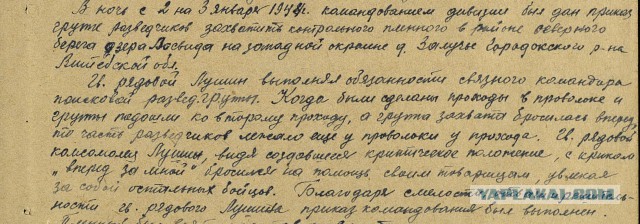 В ночь с 2 на 3 января 1944г. командованием дивизии был дан приказ
группе разведчиков захватить контрольного пленного в районе северного
берега озера Лосвида на западной окраине д. Городокского р-на
Витебской обл.
Гв. рядовой Лушин выполнял обязанности связного командира
поисковой развед.группы. Когда были сделаны проходы в проволоке и
группы подошли ко второму проходу, а группа захвата бросилась вперед,
то часть разведчиков лежало еще у проволоки у прохода. Гв. рядовой
комсомолец Лушин, видя создавшееся критическое положение, с криком
"вперед за мной" бросился на помощь своим товарищам, увлекая
за собой остальных бойцов. Благодаря смелости
ности гв. рядового Лушина приказ командования был выполнен.
YAPLAKAL.COM